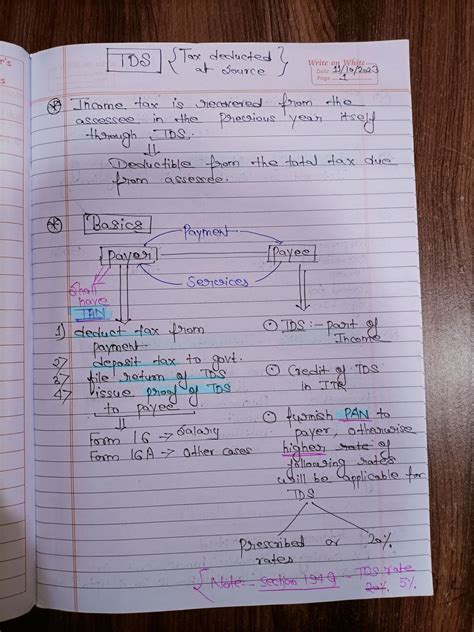 TDS { Tax deducted
at source }
Write on White
Date 11/10/2023
Page 1
Income tax is recovered from the
assessee in the previous year itself
through TDS.
Deductible from the total tax due
from assessee.
Basics
Payment
Payer
Payee
Services
Shall
have
TAN
1) deduct tax from
payment
2) deposit tax to govt.
3) file return of TDS
4) issue proof of TDS
to payee
Form 16 → Salary
Form 16A → Other cases
TDS :- part of
Income
Credit of TDS
in ITR
furnish PAN to
payer, otherwise
higher rate of
following rates
will be applicable for
TDS
prescribed or 20%
rates
{ Note:- section 194Q - TDS rate
20% 5%